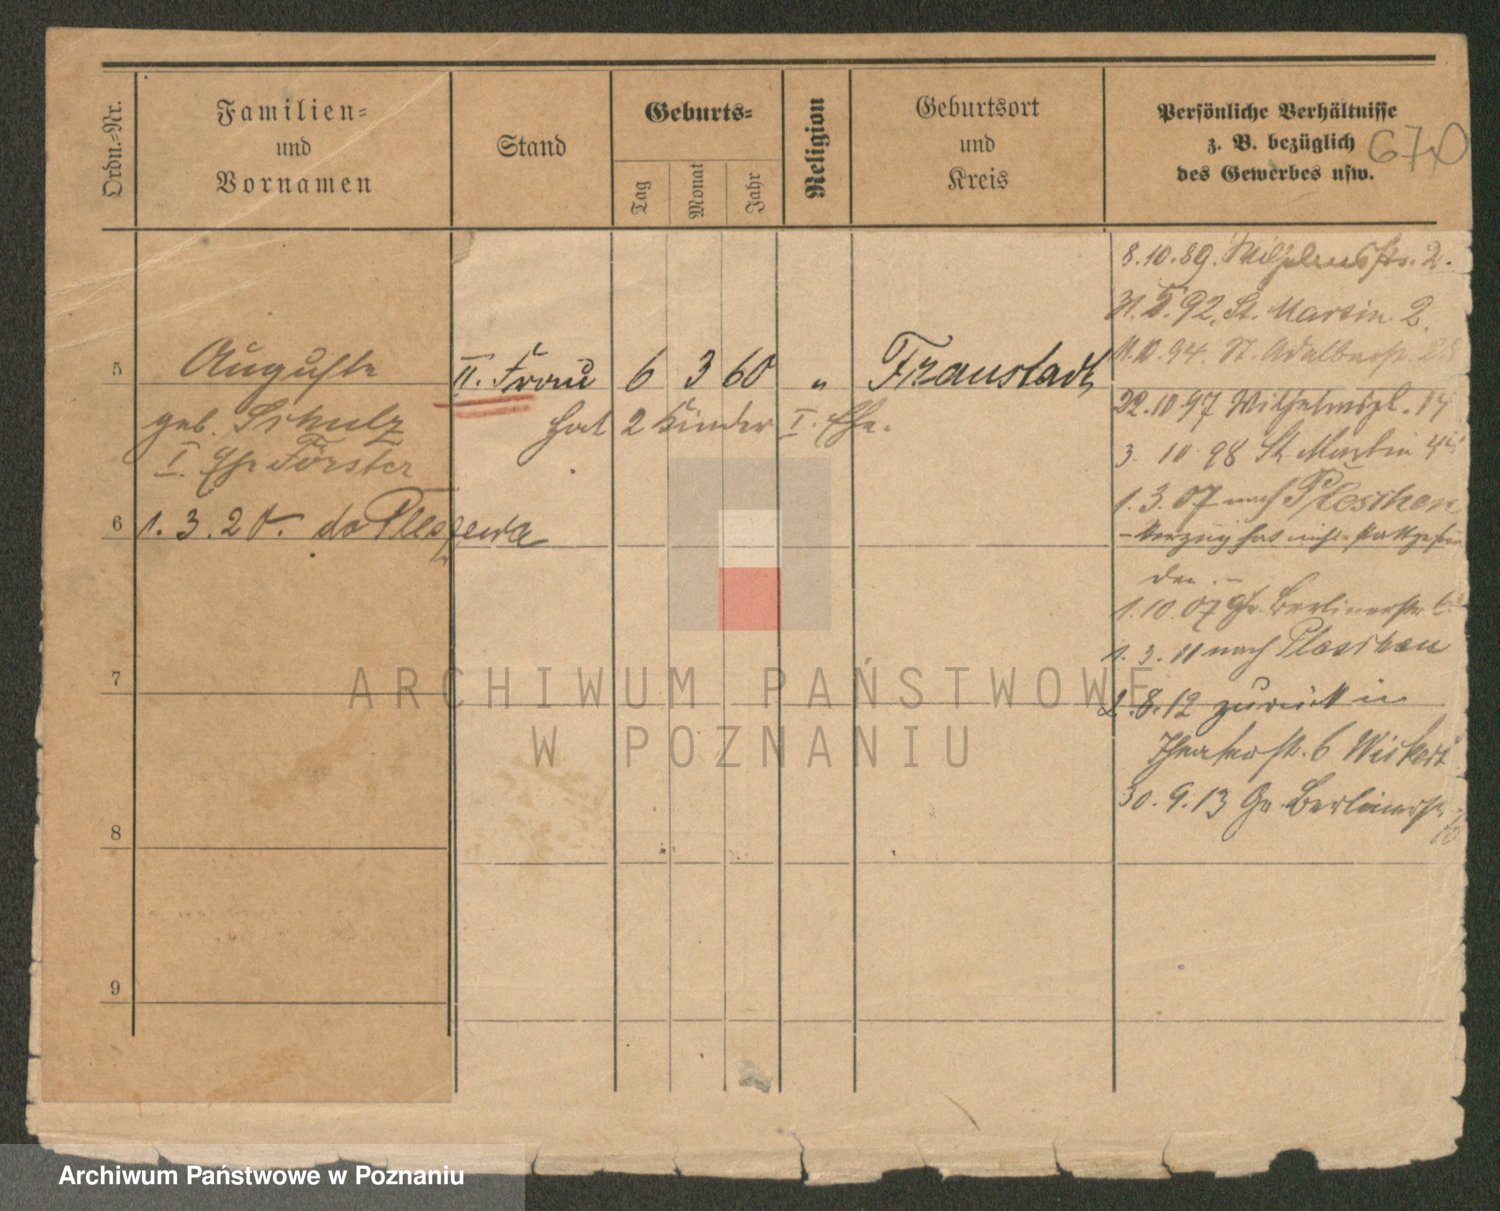 Ordn.-Nr.
Familien-
und
Vornamen
Stand
Geburts-
Tag
Monat
Jahr
Religion
Geburtsort
und
Kreis
Persönliche Verhältnisse
z. B. bezüglich
des Gewerbes usw.
670
8.10.89. Wilhelmstr. 2.
92. St. Martin 2.
94. St. Adalbertstr.
5 Auguste II. Frau 6 3 60 " Fraustadt
geb. Schulz hat 2 Kinder I. Ehe.
I. Ehe Förster
22.10.97 Wilhelmspl. 14
3. 10. 98 St. Martin
1. 3. 07 nach Pleschen
6 1. 3. 20. do Pleszewa
- Verzug hat nicht stattgefun
den. -
1.10.07 Gr. Berlinerstr.
1. 3. 11 nach Pleschen
7
2.8.12 zurück in
Theaterstr. 6
30. 9. 13 Gr. Berlinerstr.
8
9
ARCHIWUM PAŃSTWOWE
W POZNANIU
Archiwum Państwowe w Poznaniu